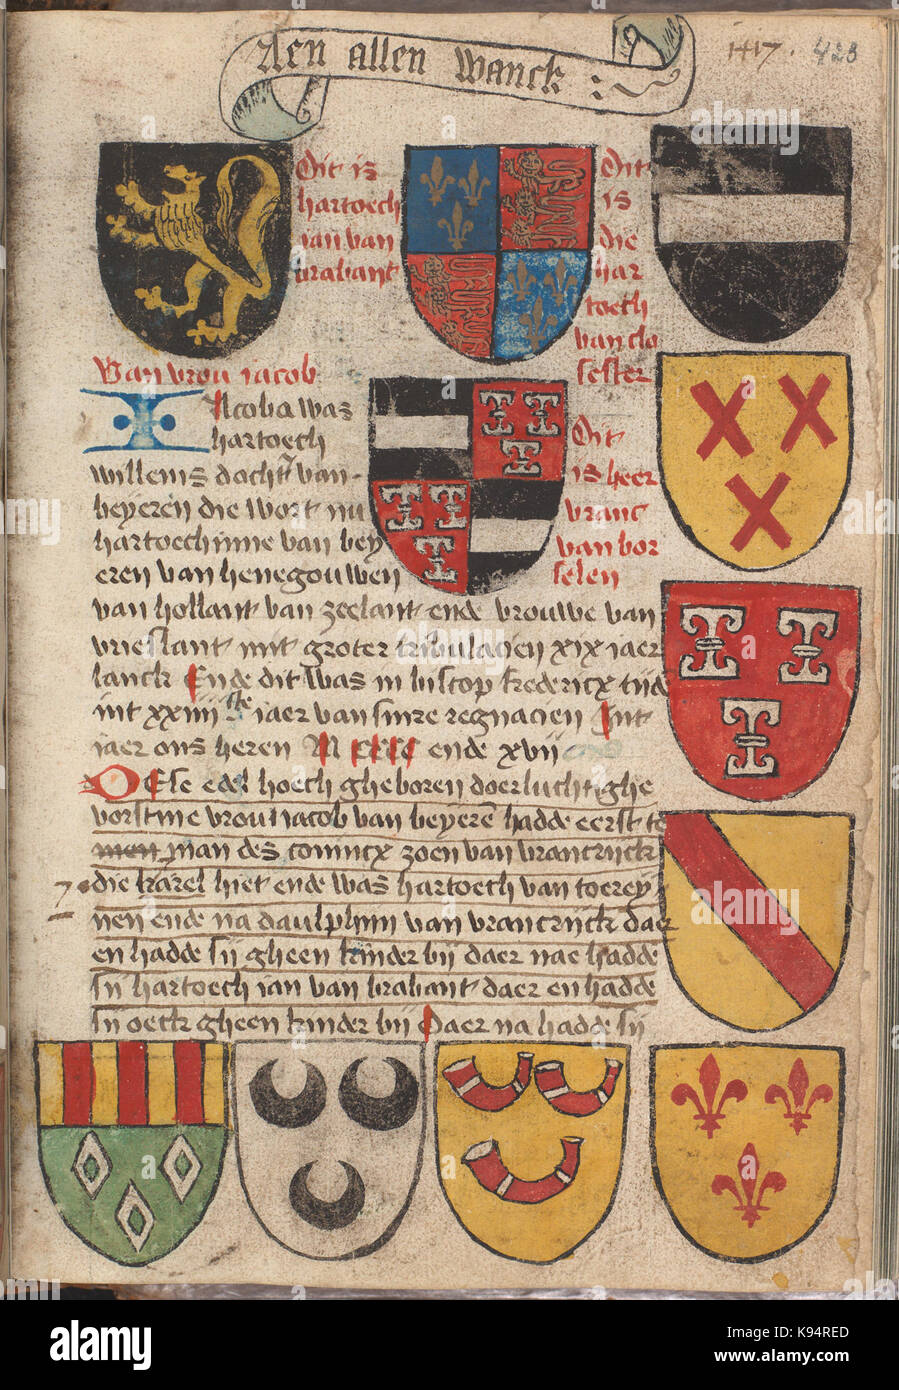 Aen allen wanck :
1417. 423
Dit is
hartoech
ian van
brabant
Dit
is
die
har
toech
van clo
sester
Van vrou iacob
IAcoba was
hartoech
willems dochtr van
beyeren die wort nu
hartoechinne van bey
eren van henegouwen
Dit
is heer
vranc
van bor
selen
van hollant van zeelant ende vrouwe van
vrieslant mit groter tribulacien xix iaer
lanck Ende dit was in biscop fredericx tijde
int xxiiii ste iaer van sinre regnacien Int
iaer ons heren M cccc ende xvij
Dese edel hoech gheboren doerluchtighe
vorstinne vrou iacob van beyeren hadde eerst te
men man des conincx zoen van vrancrijck
die karel hiet ende was hartoech van toerey
nen ende na daulphijn van vrancrijck daer
en hadde sij gheen kinder bij daer nae hadde
sij hartoech ian van brabant daer en hadde
sij oeck gheen kinder bij Daer na hadde sij
alamy
Image ID: K94RED
www.alamy.com